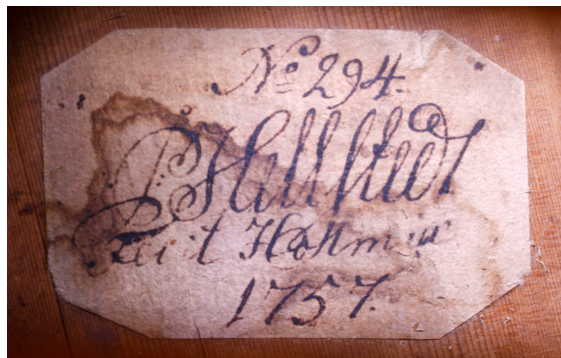 No 294.
P Hellstedt
Fecit Hollmiæ
1757.